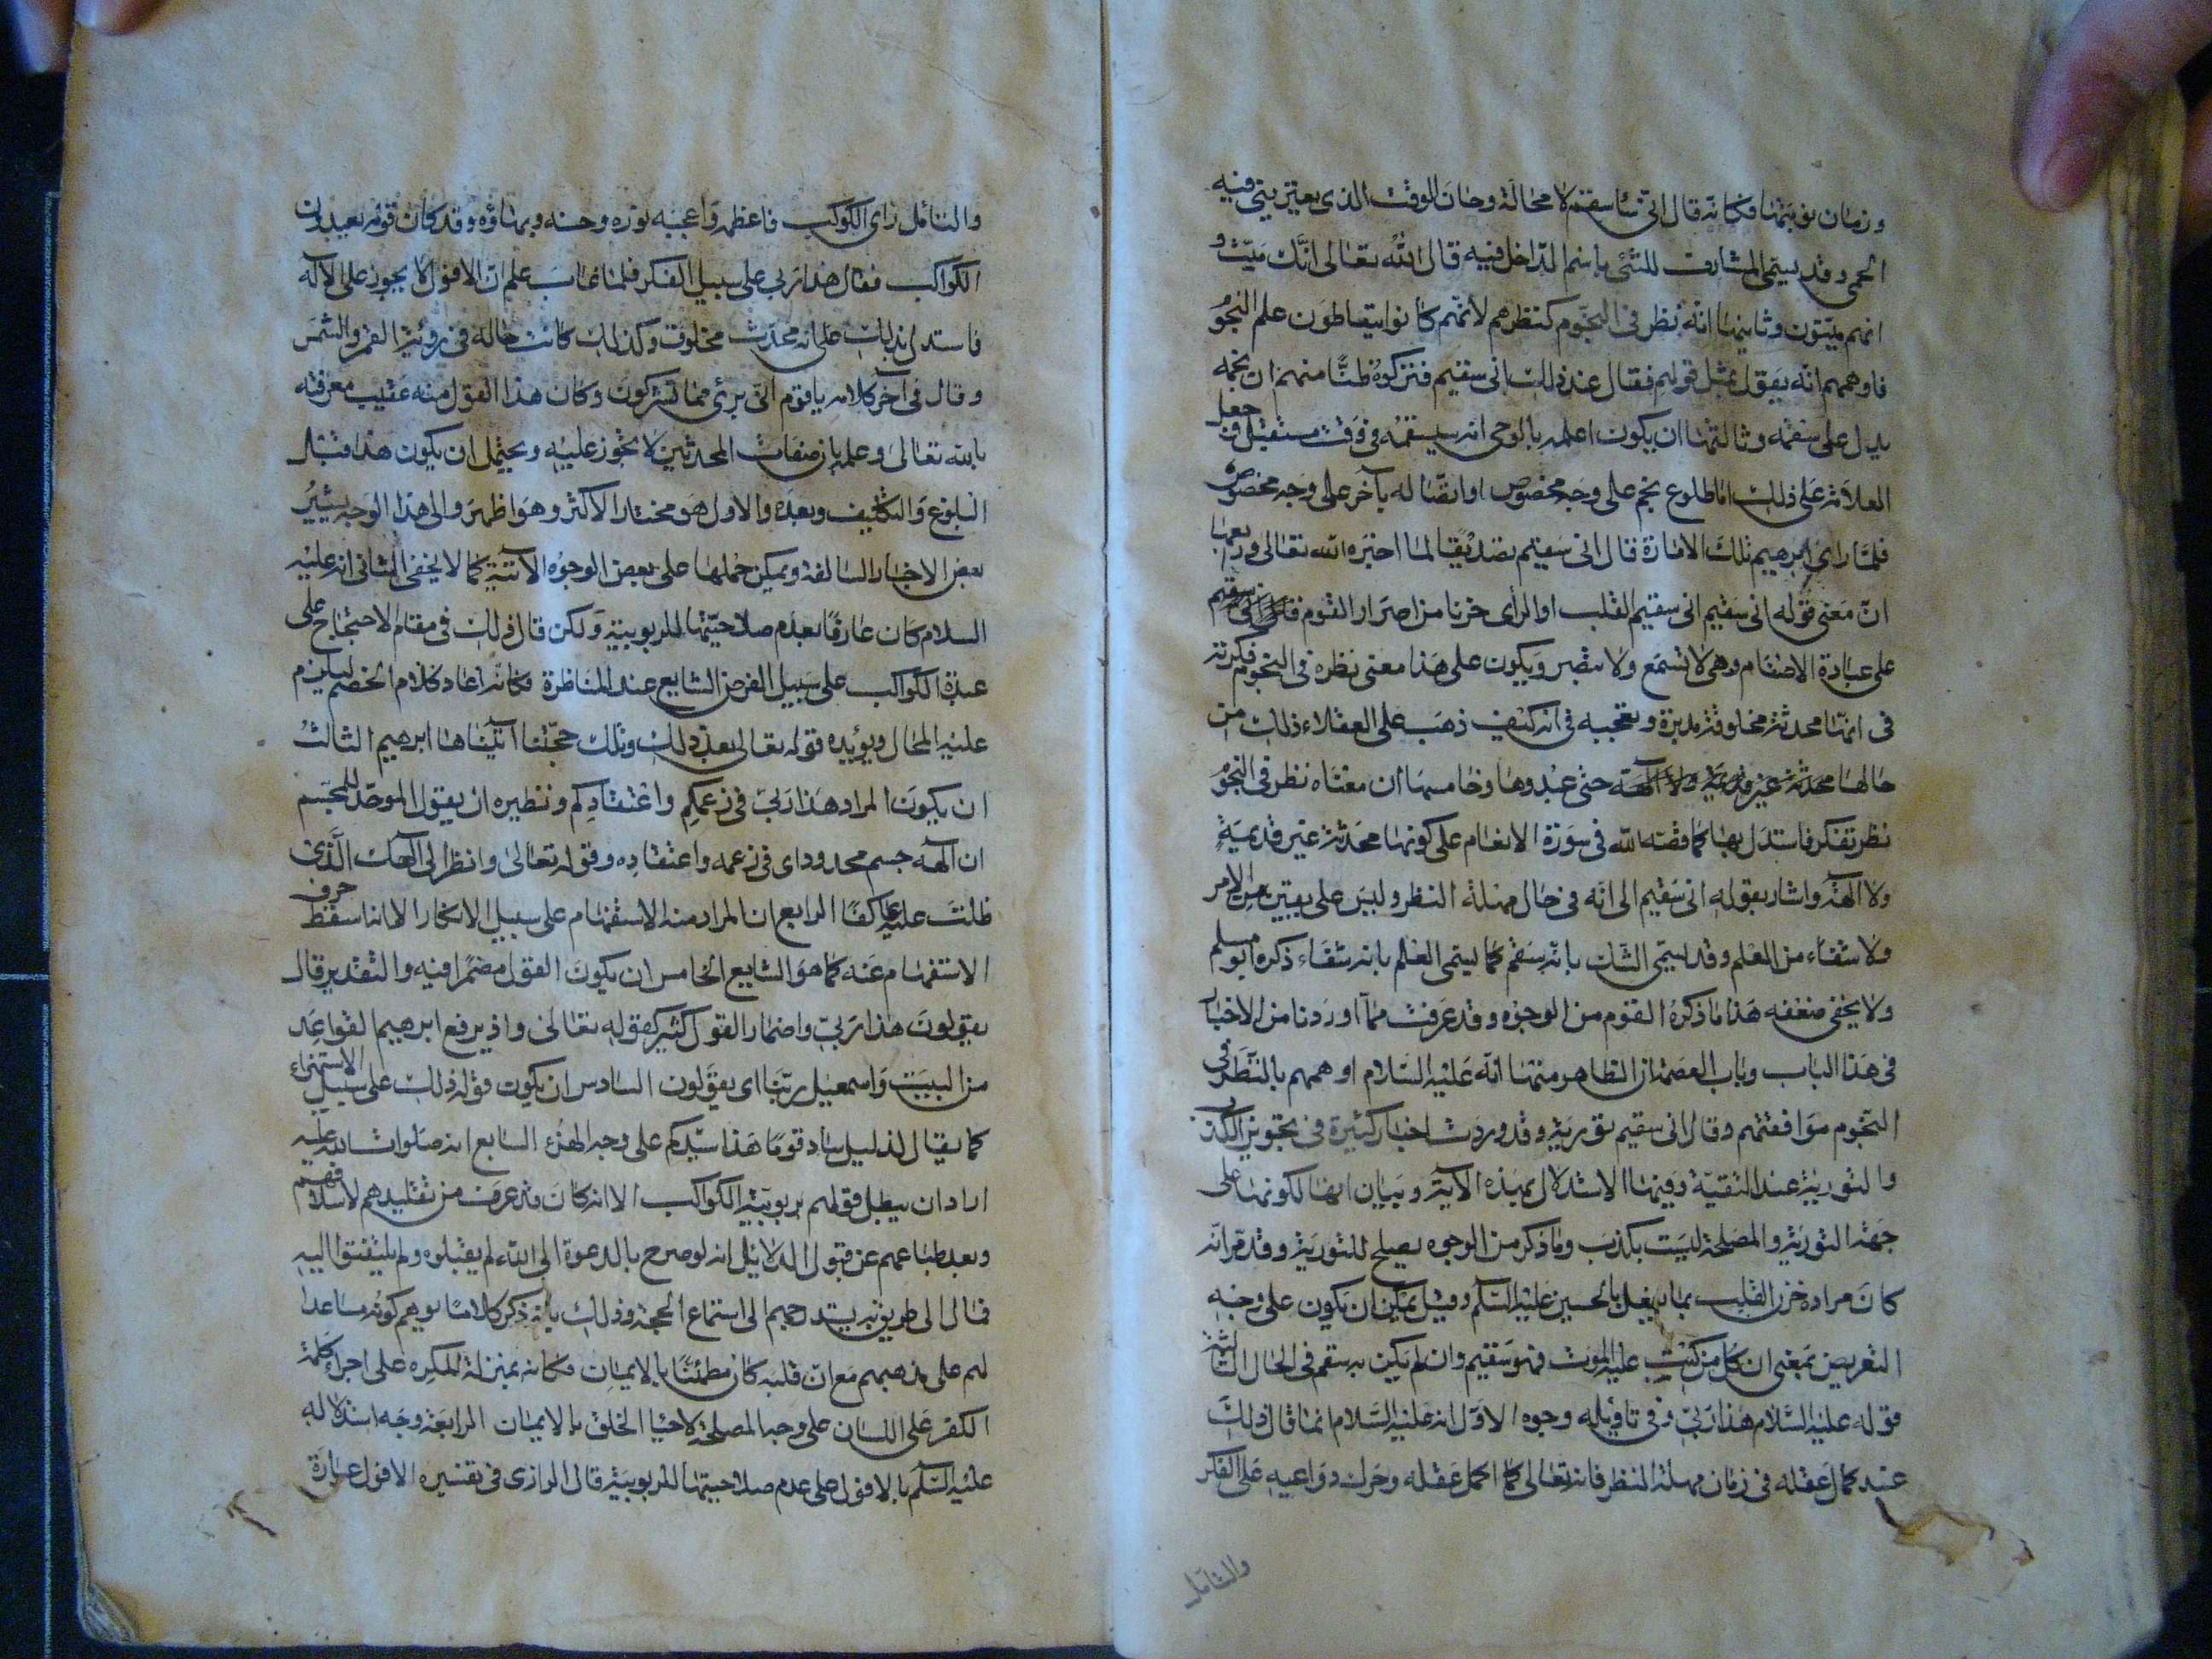 وزمان نوبتها فكانه قال انى ساسقم لا محالة وحان الوقت الذى يعترينى فيه
الحمى وقد يسمى المشارف للشئ باسم الداخل فيه قال الله تعالى انك ميت و
انهم ميتون وثانيها انه نظر فى النجوم كنظرهم لانهم كانوا يتعاطون علم النجوم
فاوهمهم انه يقول بمثل قولهم فقال عند ذلك انى سقيم فتركوه ظنا منهم ان نجمه
يدل على سقمه وثالثها ان يكون اعلمه بالوحى انه سيسقمه فى وقت مستقبل وجعل
العلامة على ذلك اما طلوع نجم على وجه مخصوص او اتصاله بآخر على وجه مخصوص
فلما راى ابرهيم تلك الامارة قال انى سقيم تصديقا لما اخبره الله تعالى ورابعها
ان معنى قوله انى سقيم انى سقيم القلب او الراى حزنا من اصرار القوم
على عبادة الاصنام وهى لا تسمع ولا تبصر ويكون على هذا معنى نظره فى النجوم فكرته
فى انها محدثة مخلوقة مدبرة وتعجبه فى انه كيف ذهب على العقلاء ذلك من
حالها محدثة غير قديمة ولا آلهة حتى عبدوها وخامسها ان معناه نظر فى النجوم
نظر تفكر فاستدل بها كما قصه الله فى سورة الانعام على كونها محدثة غير قديمة
ولا آلهة واشار بقوله انى سقيم الى انه فى حال مهلة النظر وليس على يقين من الامر
ولا شفاء من العلم وقد يسمى الشك بانه سقم كما يسمى العلم بانه شفاء ذكره ابو مسلم
ولا يخفى ضعفه هذا ما ذكره القوم من الوجوه وقد عرفت مما اوردنا من الاخبار
فى هذا الباب وباب العصمة ان الظاهر منها انه عليه السلام اوهمهم بالنظر فى
النجوم موافقتهم وقال انى سقيم تورية وقد وردت اخبار كثيرة فى تجويز الكذب
والتورية عند التقية وفيها الاستدلال بهذه الآية وبيان انها لكونها على
جهة التورية والمصلحة ليست بكذب وما ذكر من الوجوه يصلح للتورية وقد مر انه
كان مراده حزن القلب بما يفعل بالحسين عليه السلم وقيل يمكن ان يكون على وجه
التعريض بمعنى ان كل من كتب عليه الموت فهو سقيم وان لم يكن به سقم فى الحال الثالثة
قوله عليه السلام هذا ربى وفى تاويله وجوه الاول انه عليه السلام انما قال ذلك
عند كمال عقله فى زمان مهلة النظر فانه تعالى لما اكمل عقله وحرك دواعيه على الفكر
والتامل
والتامل راى الكوكب فاعظمه واعجبه نوره وحسنه وبهاؤه وقد كان قومه يعبدون
الكواكب فقال هذا ربى على سبيل الفكر فلما غاب علم ان الافول لا يجوز على الاله
فاستدل بذلك على انه محدث مخلوق وكذلك كانت حاله فى رؤية القمر والشمس
وقال فى آخر كلامه يا قوم انى برئ مما تشركون وكان هذا القول منه عقيب معرفته
بالله تعالى وعلمه بان صفات المحدثين لا تجوز عليه ويحتمل ان يكون هذا قبل
البلوغ والتكليف وبعده والاول هو مختار الاكثر وهو اظهر والى هذا الوجه يشير
بعض الاخبار السالفة ويمكن حملها على بعض الوجوه الآتية كما لا يخفى الثانى انه عليه
السلام كان عارفا بعدم صلاحيتها للربوبية ولكن قال ذلك فى مقام الاحتجاج على
عبدة الكواكب على سبيل الفرض الشايع عند المناظرة فكانه اعاد كلام الخصم ليلزم
عليه المحال ويؤيده قوله تعالى بعد ذلك وتلك حجتنا آتيناها ابرهيم الثالث
ان يكون المراد هذا ربى فى زعمكم واعتقادكم ونظيره ان يقول الموحد للمجسم
ان آلهه جسم محدود اى فى زعمه واعتقاده وقوله تعالى وانظر الى آلهك الذى
ظلت عليه عاكفا الرابع ان المراد منه الاستفهام على سبيل الانكار الا انه اسقط حرف
الاستفهام عنه كما هو الشايع الخامس ان يكون القول مضمرا فيه والتقدير قال
يقولون هذا ربى واضمار القول كثير كقوله تعالى واذ يرفع ابرهيم القواعد
من البيت واسمعيل ربنا اى يقولون السادس ان يكون قوله ذلك على سبيل الاستهزاء
كما يقال لذليل ساد قوما هذا سيدكم على وجه الهزء السابع انه صلوات الله عليه
اراد ان يبطل قولهم بربوبية الكواكب الا انه كان قد عرف من تقليدهم لاسلافهم
وبعد طباعهم عن قبول الدلايل انه لو صرح بالدعوة الى الله لم يقبلوه ولم يلتفتوا اليه
فمال الى طريق به يستدرجهم الى استماع الحجة وذلك بانه ذكر كلاما يوهم كونه مساعدا
لهم على مذهبهم مع ان قلبه كان مطمئنا بالايمان فكانه بمنزلة المكره على اجراء كلمة
الكفر على اللسان على وجه المصلحة لاحياء الخلق بالايمان الرابعة وجه استدلاله
عليه السلم بالافول على عدم صلاحيتها للربوبية قال الرازى فى تفسيره الافول عبارة